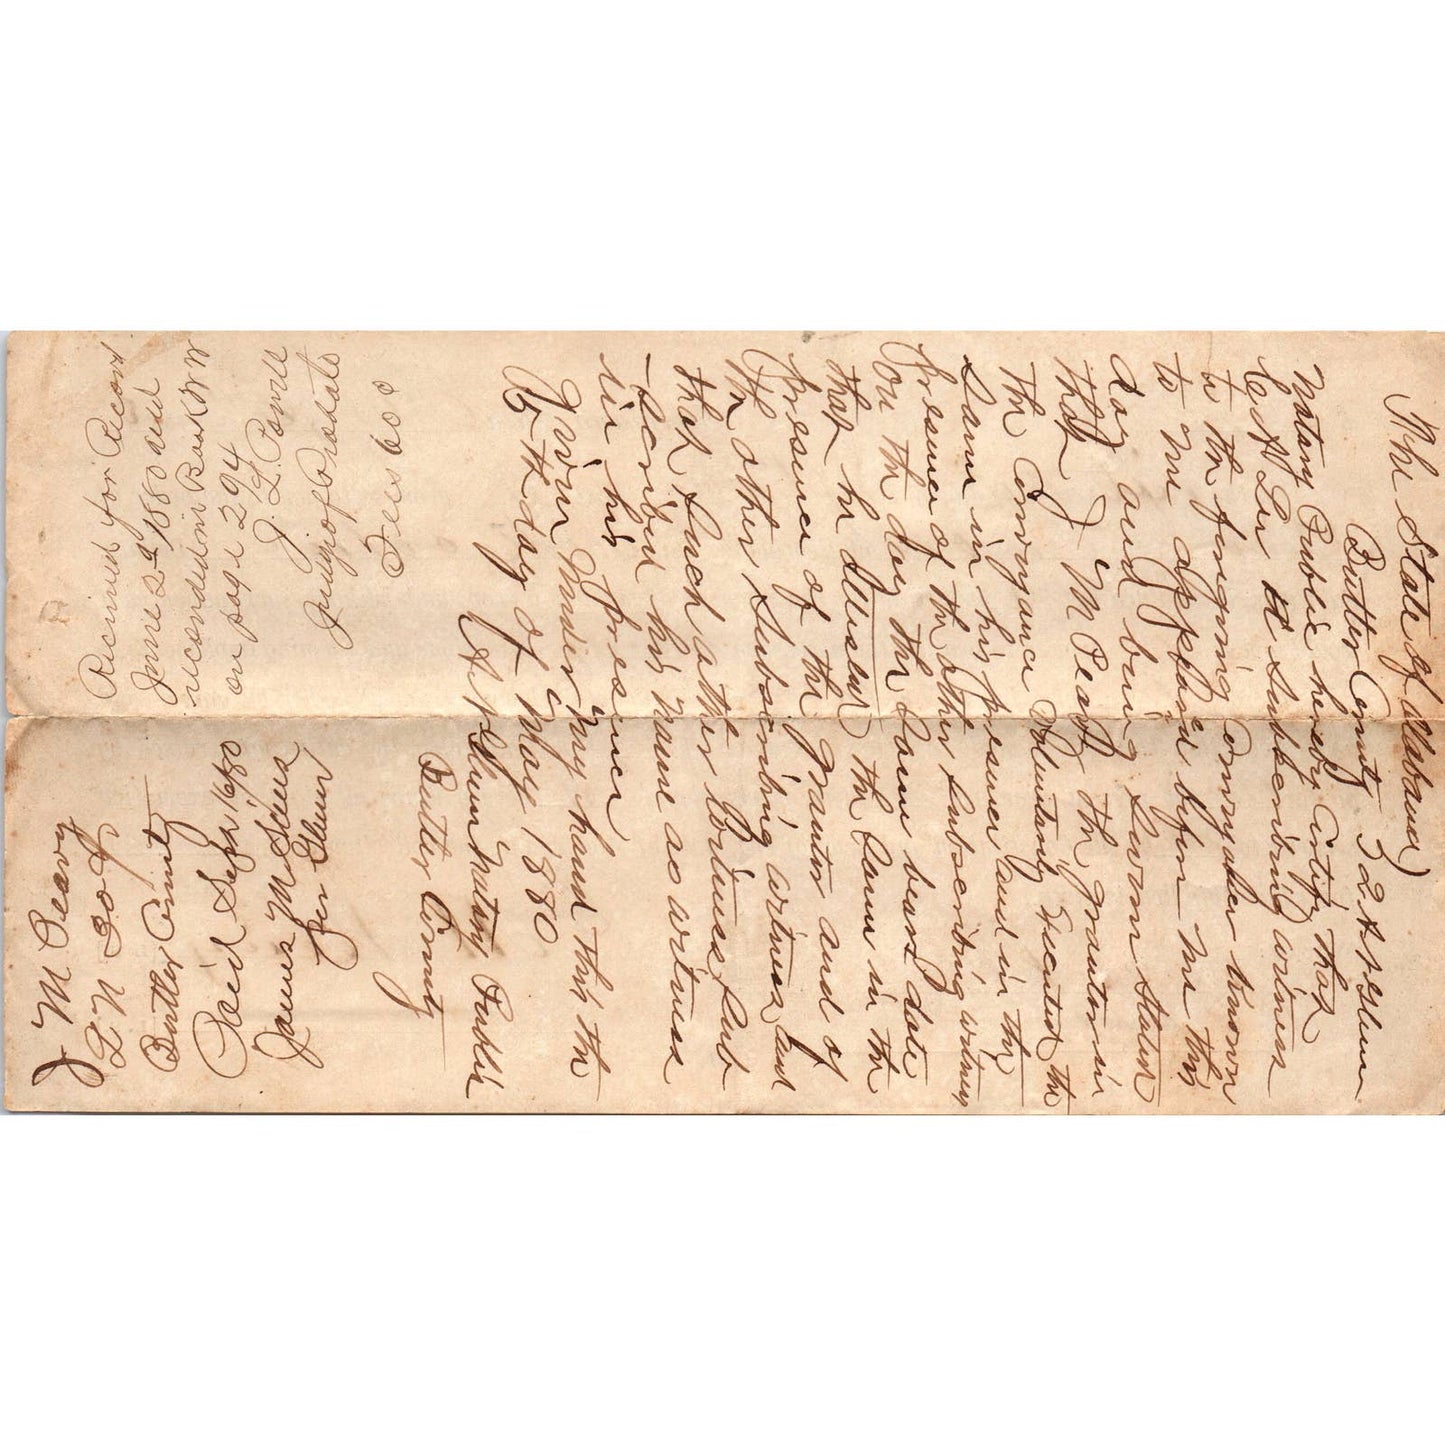 The State of Alabama)
Butler County I A A Glenn
Notary Public hereby Certify that
C A Lee A Subscribing witness
to the foregoing Conveyance known
to me appeared before me this
day and being Sworn Stated
that J M Peavy the grantor in
the Conveyance Voluntarily Executed the
Same in his presence and in the
Presence of the other Subscribing witness
On the day the Same bears date
that he attested the Same in the
presence of the grantor and of
the other Subscribing witness and
that Such other Witness Sub
-scribed his name as witness
in his presence
Given Under My hand this the
25th day of May 1880
A A Glenn Notary Public
Butler County
Received for Record
June 2nd 1880 and
recorded in Book
on page 294
J. L. Powell
Judge of Probate
Fees 60c
J M Peavy
Butler County
Paid 1880
James M
per Glenn